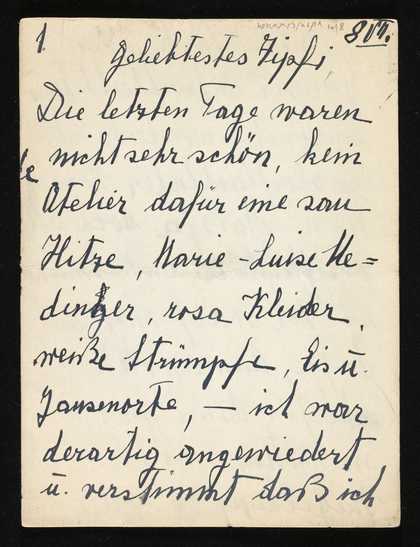 1
8 VII.
Geliebtestes Zipfi
Die letzten Tage waren
nicht sehr schön, kein
Atelier dafür eine sau
Hitze, Marie-Luise Me=
dinger, rosa Kleider,
weiße Strümpfe, Eis u.
Jausenorte, – ich war
derartig angewiedert
u. verstimmt daß ich